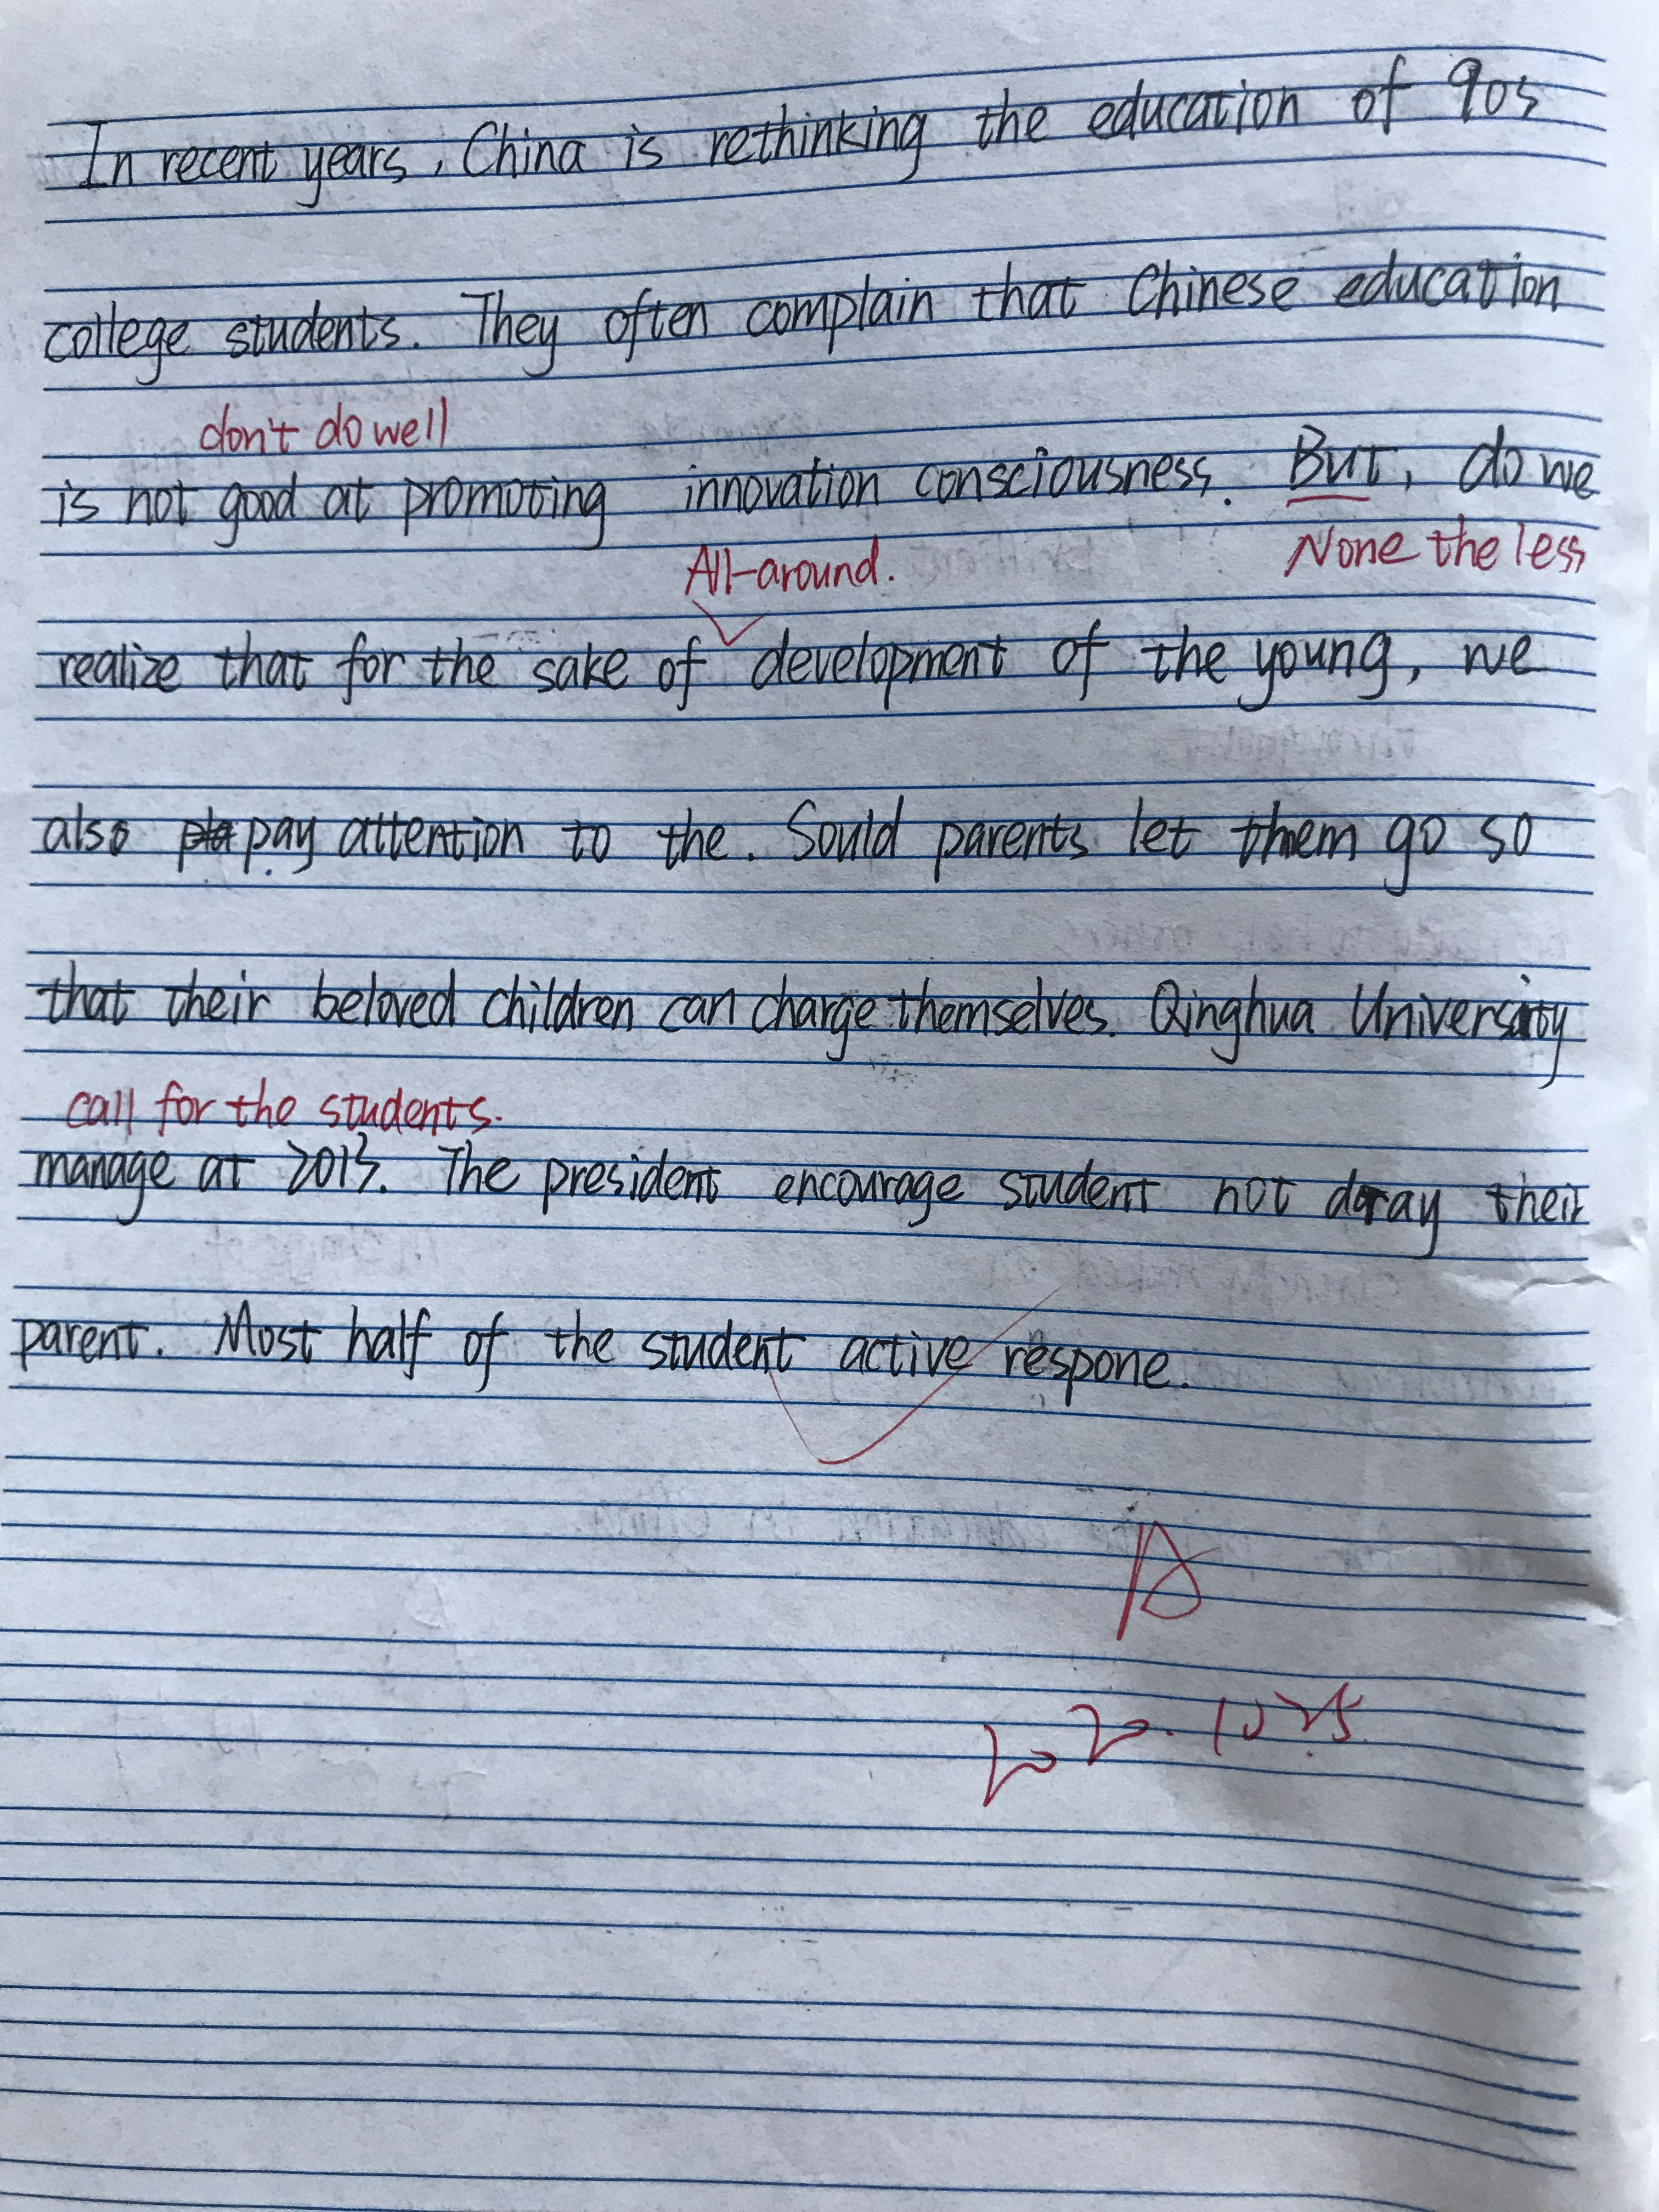 In recent years, China is rethinking the education of 90s
college students. They often complain that Chinese education
don't do well
is not good at promoting innovation consciousness. But, do we
All-around. None the less
realize that for the sake of development of the young, we
also pay attention to the. Sould parents let them go so
that their beloved children can charge themselves. Qinghua University
call for the students.
manage at 2013. The president encourage student not their
parent. Most half of the student active respone.
A